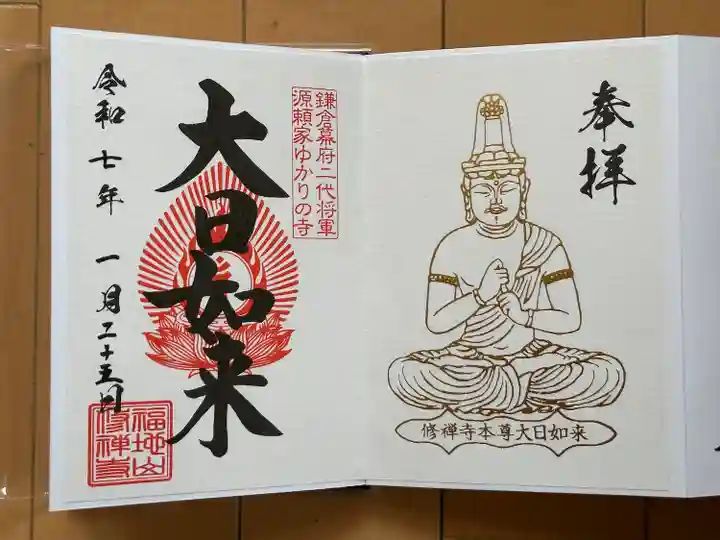 奉拝
修禅寺本尊大日如来
鎌倉幕府二代将軍
源頼家ゆかりの寺
大日如来
令和七年 一月二十五日
福地山
修禅寺